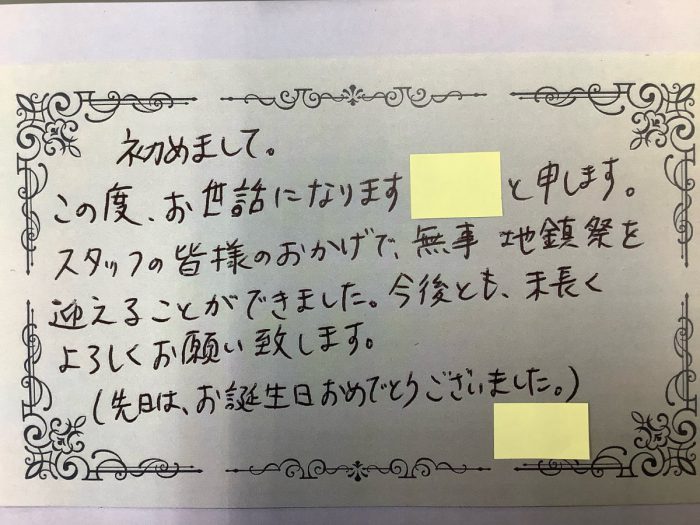 初めまして。
この度、お世話になります と申します。
スタッフの皆様のおかげで、無事 地鎮祭を
迎えることができました。今後とも、末長く
よろしくお願い致します。
(先日は、お誕生日おめでとうございました。)